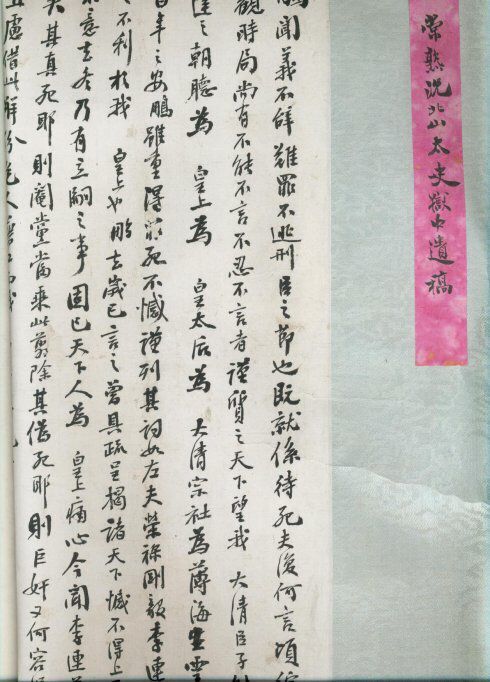 常熟沈北山太史獄中遺稿
鵬聞義不辞難罪不逃刑臣之節也既就係待死夫復何言頃
觀時局尚有不能不言不忍不言者謹質之天下望我 大清臣子
達之朝聽為 皇上為 皇太后為 大清宗社為薄海生靈
百年之安鵬雖重得罪死不憾謹列其詞如左夫榮祿剛毅李連
不利於我 皇上也鵬去歲已言之曾具疏呈揭諸天下憾不得上
意去冬乃有立嗣之事固已天下人為 皇上痛心今聞李連
其真死耶則閹黨當乘此翦除其偽死耶則巨奸又何容
廬借此解紛